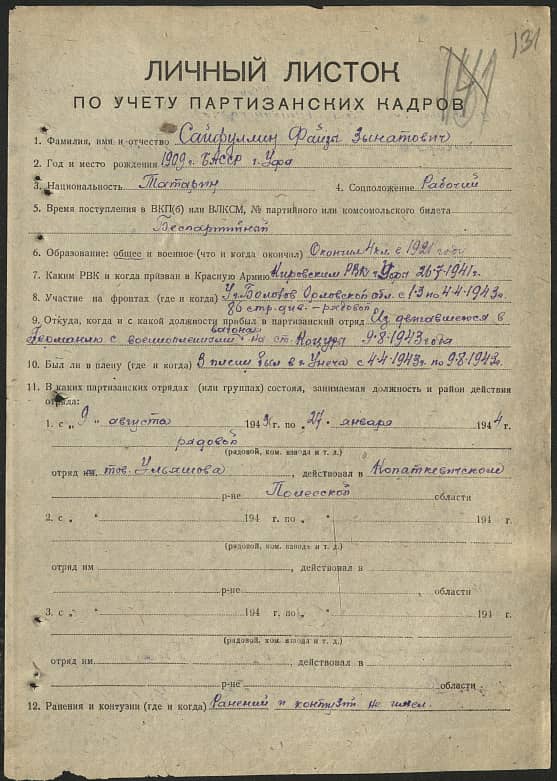 131
ЛИЧНЫЙ ЛИСТОК
ПО УЧЕТУ ПАРТИЗАНСКИХ КАДРОВ
1. Фамилия, имя и отчество Сайфуллин Файзы Зынатович
2. Год и место рождения 1909 г. БАССР г. Уфа
3. Национальность Татарин 4. Соцположение Рабочий
5. Время поступления в ВКП(б) или ВЛКСМ, № партийного или комсомольского билета
Беспартийный
6. Образование: общее и военное (что и когда окончил) Окончил 4 кл. в 1921 году
7. Каким РВК и когда призван в Красную Армию Кировским РВК г. Уфа 26-7-1941 г.
8. Участие на фронтах (где и когда) Орловской обл. с 1-3 по 4-4-1943 г.
рядовой
9. Откуда, когда и с какой должности прибыл в партизанский отряд Из
Германию с военнопленными на ст. 9-8-1943 года
10. Был ли в плену (где и когда) В плену был в г. Унеча с 4-4-1943 г. по 9-8-1943 г.
11. В каких партизанских отрядах (или группах) состоял, занимаемая должность и район действия
отряда:
1. с „ 9 „ августа 194 г. по „ 27 „ января 194 4 г.
рядовой
(рядовой, ком. взвода и т. д.)
отряд им. тов. Ульяшова, действовал в Копаткевичском
р-не Полесской области
2. с „ " 194 г. по „ " 194 г.
(рядовой, ком. взвода и т. д.)
отряд им , действовал в
р-не , области
3. с „ " 194 г. по „ " 194 г.
(рядовой, ком. взвода и т. д.)
отряд им. , действовал в
р-не области
12. Ранения и контузии (где и когда) Ранений и контузий не имел.